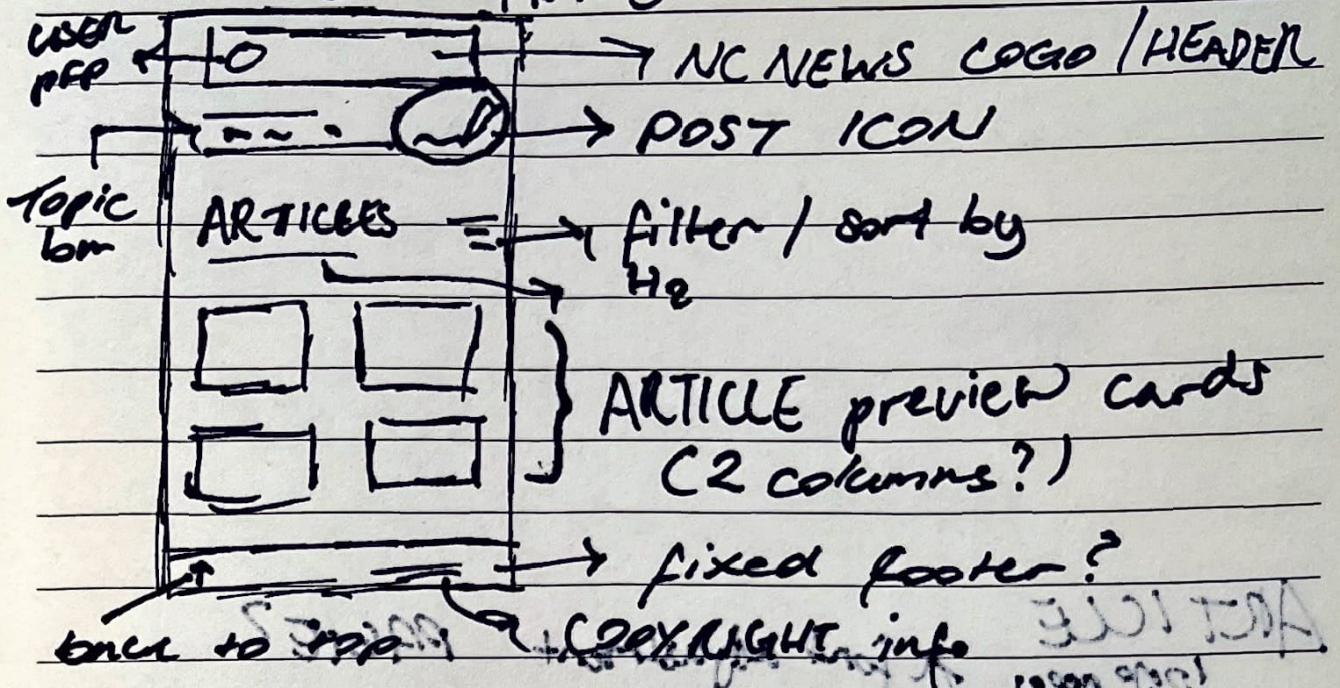 USER
PFP
NC NEWS LOGO / HEADER
POST ICON
Topic
bar
ARTICLES
filter / sort by
H2
ARTICLE preview cards
(2 columns?)
fixed footer?
back to top
COPYRIGHT info